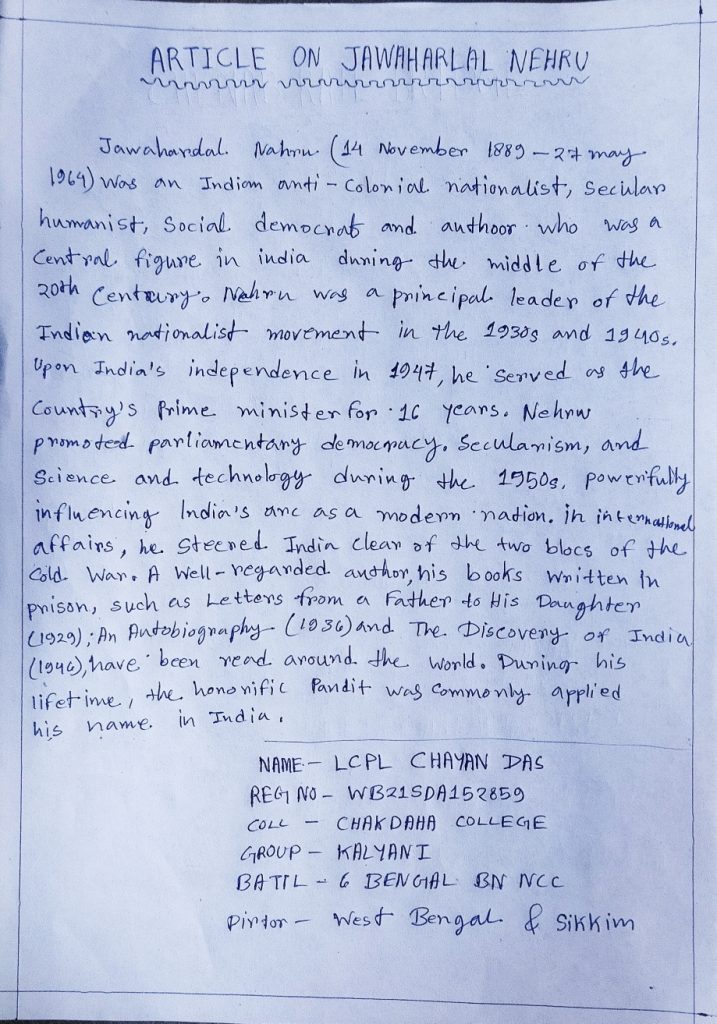 ARTICLE ON JAWAHARLAL NEHRU
Jawahardal Nahru (14 November 1889 – 27 may
1964) was an Indian anti-Colonial nationalist, Secular
humanist, Social democrat and authoor who was a
Central figure in india during the middle of the
20th Centrury. Nehru was a principal leader of the
Indian nationalist movement in the 1930s and 1940s.
Upon India's independence in 1947, he served as the
Country's Prime minister for 16 years. Nehru
promoted parliamentary democracy. Secularism, and
Science and technology during the 1950s, powerfully
influencing India's arc as a modern nation. in international
affairs, he Steered India Clear of the two blocs of the
Cold War. A Well-regarded author, his books written in
prison, such as Letters from a Father to His Daughter
(1929); An Autobiography (1936) and The Discovery of India
(1946), have been read around the World. During his
lifetime, the honorific Pandit was Commonly applied
his name in India.
NAME – LCPL CHAYAN DAS
REG NO – WB21SDA152859
COLL – CHAKDAHA COLLEGE
GROUP – KALYANI
BATTL – 6 BENGAL BN NCC
Dirtor – West Bengal & Sikkim